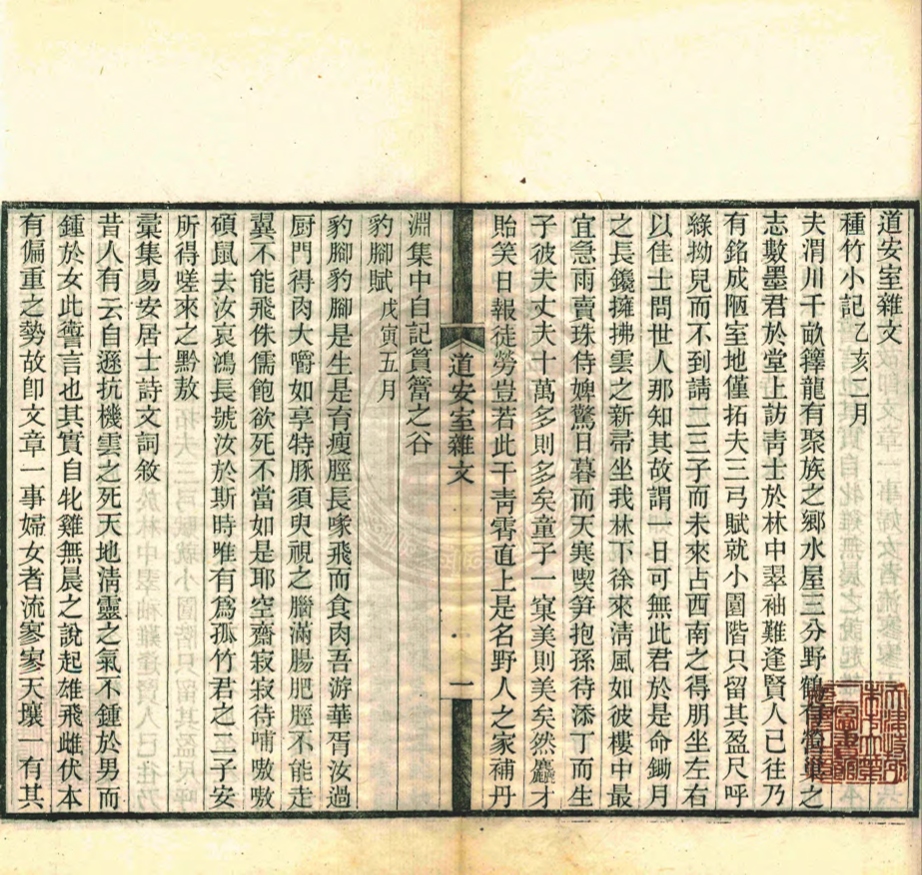 道安室雜文
種竹小記乙亥二月
夫渭川千畝籜龍有聚族之鄉水屋三分野鶴有營巢之
志數墨君於堂上訪靑士於林中翠袖難逢賢人已往乃
有銘成陋室地僅拓夫三弓賦就小園階只留其盈尺呼
綠拗兒而不到請二三子而未來占西南之得朋坐左右
以佳士問世人那知其故謂一日可無此君於是命鋤月
之長鑱擁拂雲之新帚坐我林下徐來淸風如彼樓中最
宜急雨賣珠侍婢驚日暮而天寒喫笋抱孫待添丁而生
子彼夫丈夫十萬多則多矣童子一寞美則美矣然麤才
貽笑日報徒勞豈若此干靑霄直上是名野人之家補丹
道安室雜文 一
淵集中自記篔簹之谷
豹腳賦戊寅五月
豹腳豹腳是生是育瘦脛長喙飛而食肉吾游華胥汝過
厨門得肉大嚼如享特豚須臾視之膓滿腸肥脛不能走
翼不能飛侏儒飽欲死不當如是耶空齋寂寂待哺嗷嗷
碩鼠去汝哀鴻長號汝於斯時唯有爲孤竹君之二子安
所得嗟來之黔敖
藁集易安居士詩文詞敘
昔人有云自遜抗機雲之死天地淸靈之氣不鍾於男而
鍾於女此讏言也其實自牝雞無晨之說起雄飛雌伏本
有偏重之勢故卽文章一事婦女者流寥寥天壤一有其